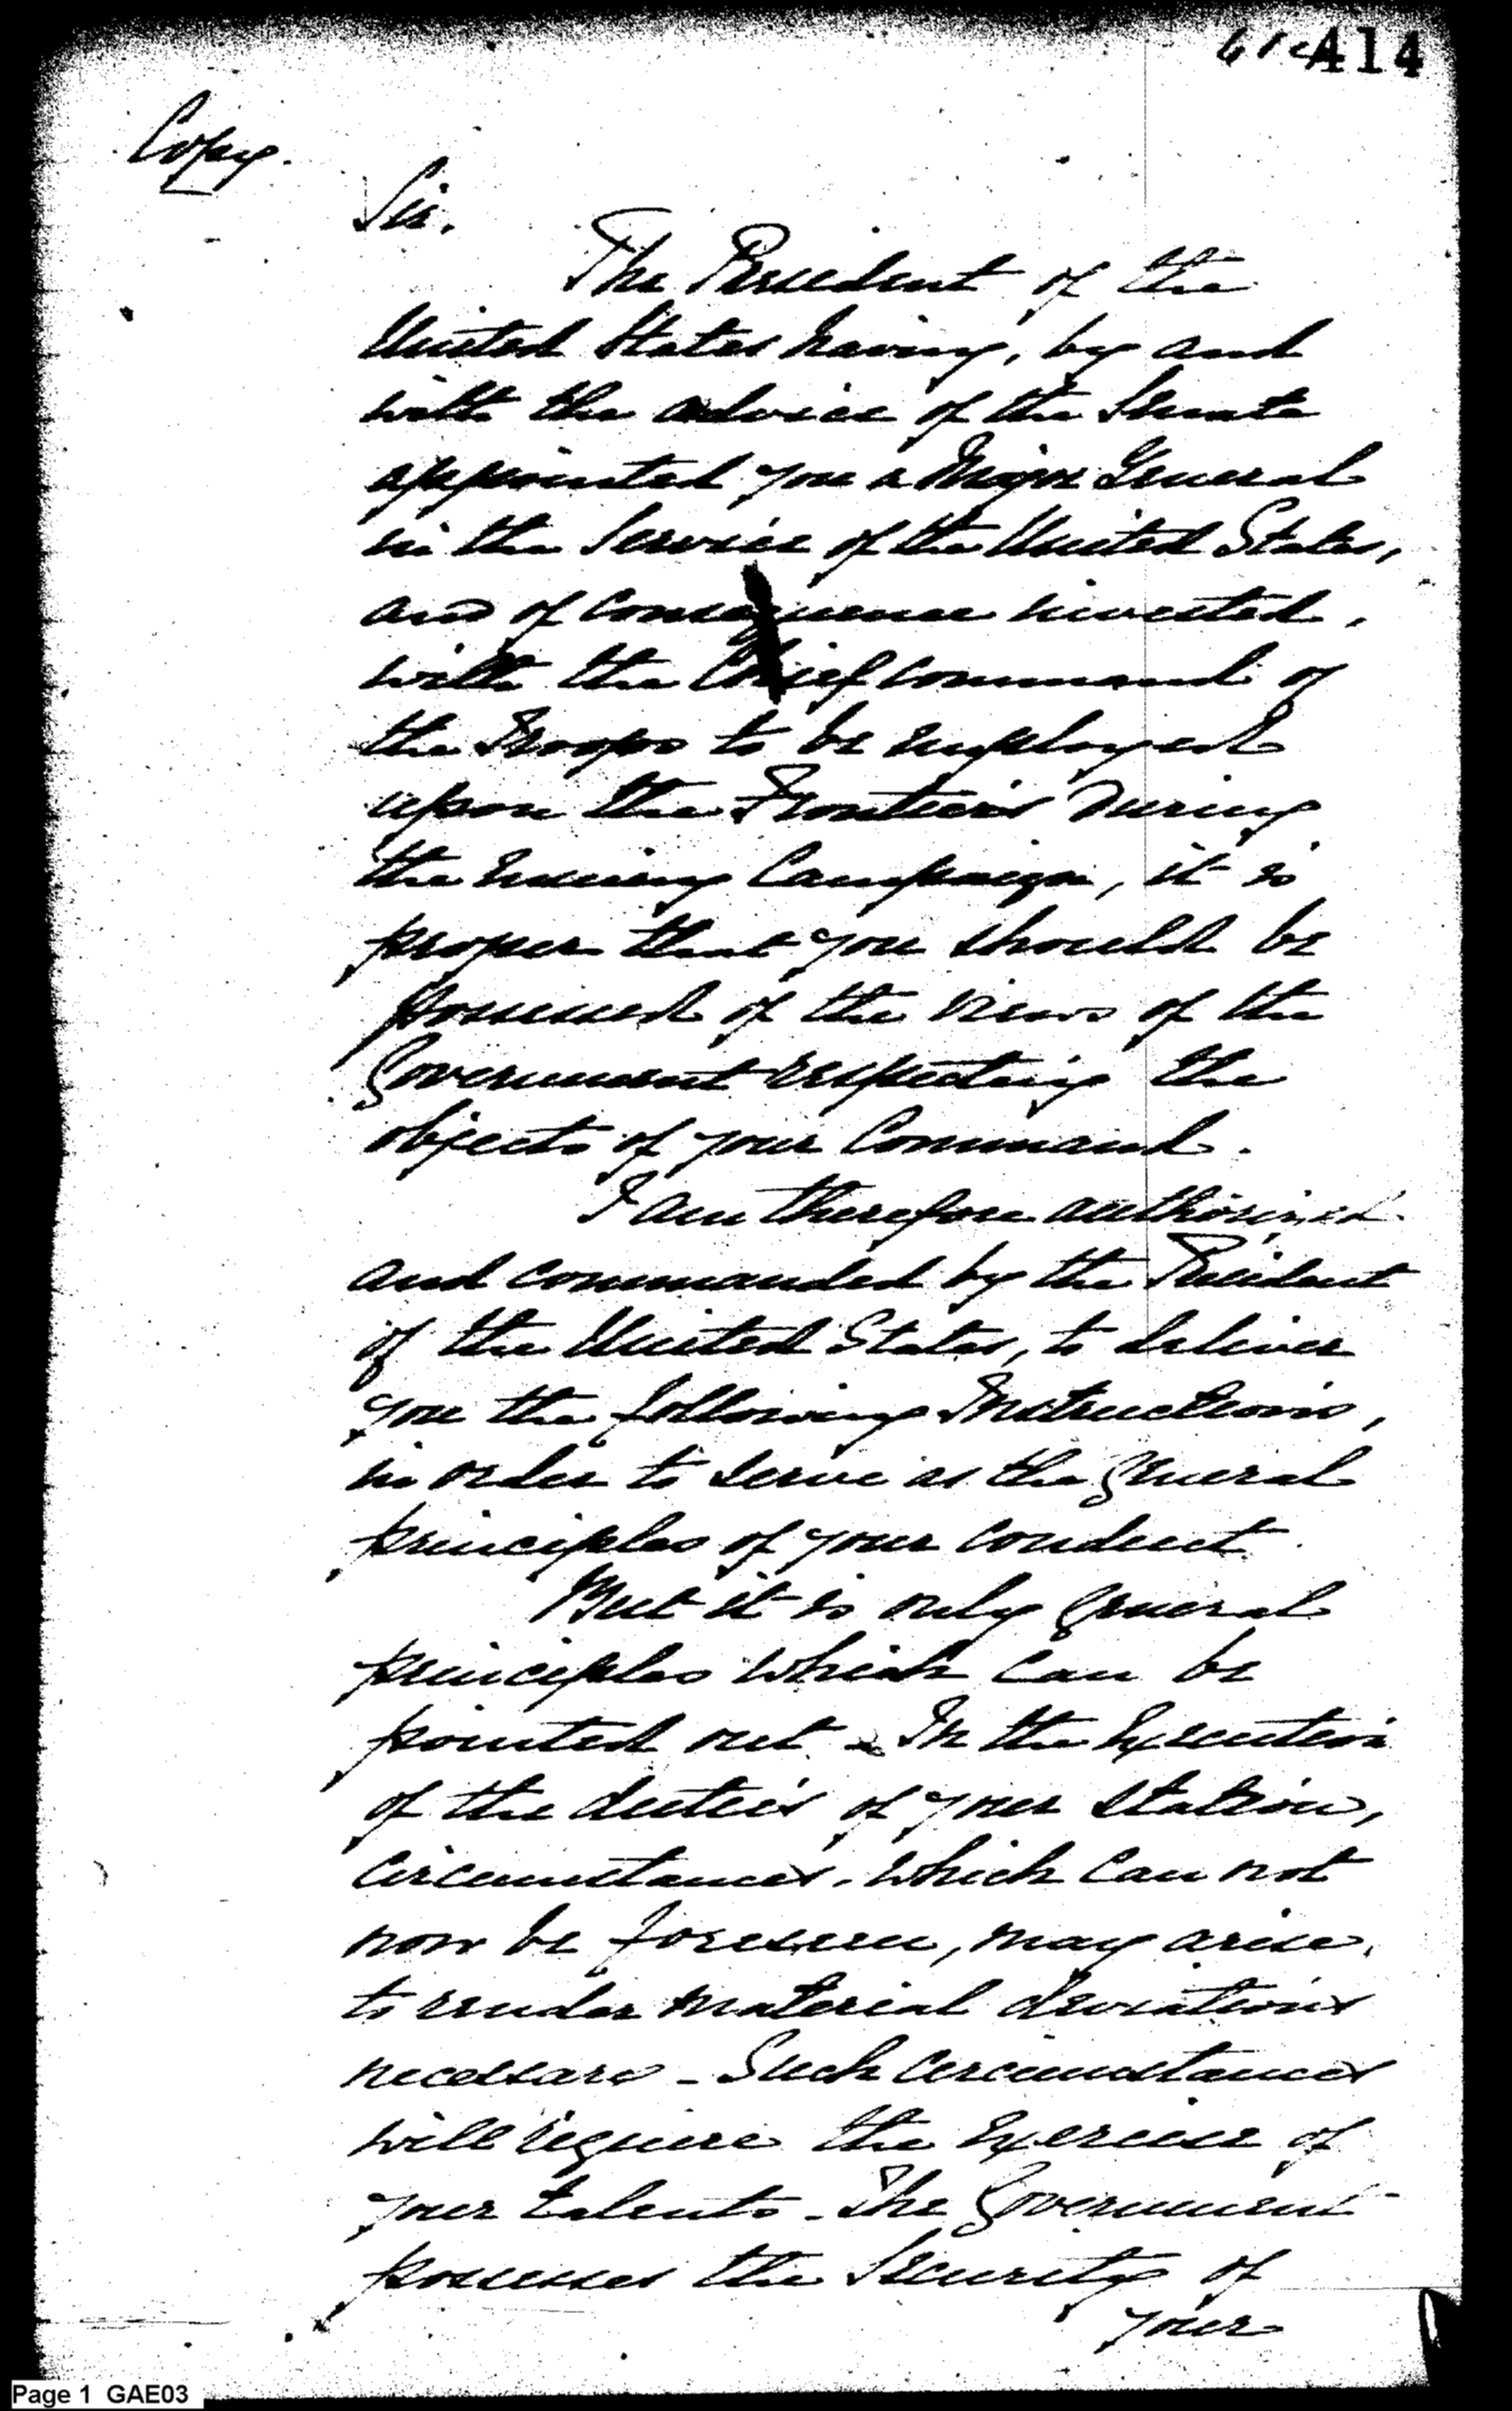 414
Copy.
Sir.
The President of the
United States having, by and
with the advice of the Senate
appointed you a Major General
in the Service of the United States,
and of consequence invested,
with the Chief command of
the Troops to be employed
upon the Frontiers during
the ensuing Campaign, it is
proper that you should be
possessed of the views of the
Government respecting the
objects of your Command.
I am therefore authorized
and commanded by the President
of the United States, to deliver
you the following Instructions,
in order to serve as the general
principles of your conduct.
But it is only general
principles which can be
pointed out - In the Execution
of the duties of your station,
circumstances, which can not
now be foreseen, may arise,
to render material deviations
necessary - Such circumstances
will require the exercise of
your talents - The Government
possesses the Security of
your
Page 1 GAE03